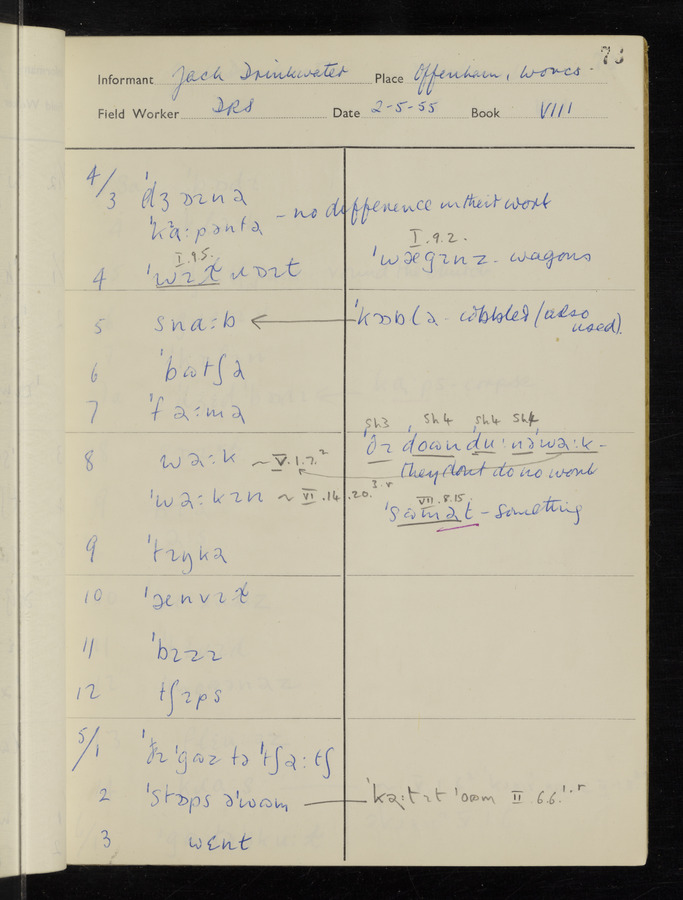 73
Informant Jack Drinkwater Place Offenham, Worcs.
Field Worker DRS Date 2-5-55 Book VIII
4/3 ˈdʒɔɪnə
ˈka:pəntə - no difference in their work
I.9.5. I.9.2.
4 ˈwɪɫ ˈwægɪnz - wagons
5 sna:b ← ˈkɒblə - cobbler (also used).
6 ˈbʊtʃə
7 ˈfa:mə
sh3 sh4 sh4 sh4
8 wə:k ~ V.1.7.² ðɪ doʊn du: nə wə:k -
they don't do no work
ˈwə:kɪn ~ VI.14.20. VII.8.15.
ˈsʊmət - something
9 ˈtɪŋkə
10 ˈænvɪɫ
11 ˈbɪzɪ
12 tʃɪps
5/1 ðɪ ˈgʊz tə ˈtʃə:tʃ
2 ˈstɒps əˈwʊm — II.6.6.
3 wɛnt